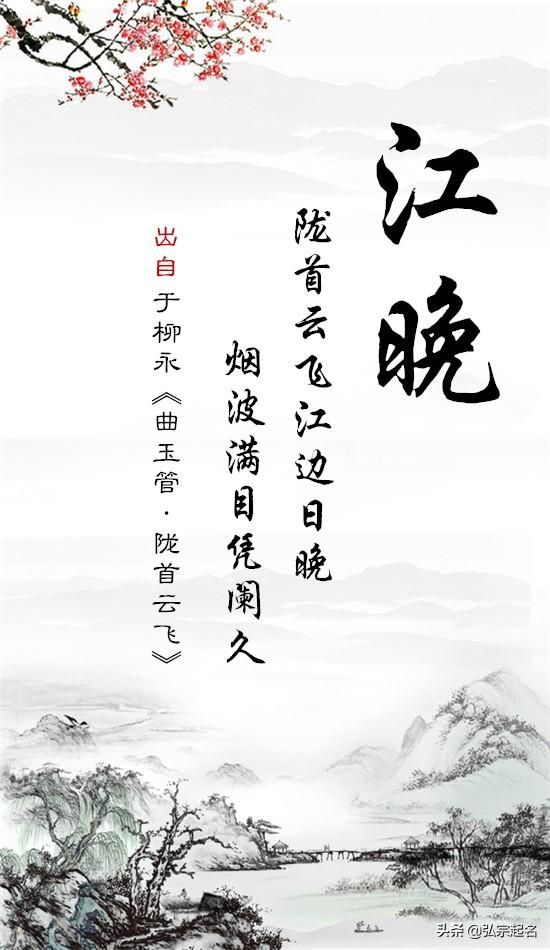 江晚
陇首云飞江边日晚
烟波满目凭阑久
出自于柳永《曲玉管·陇首云飞》
头条@弘宗起名